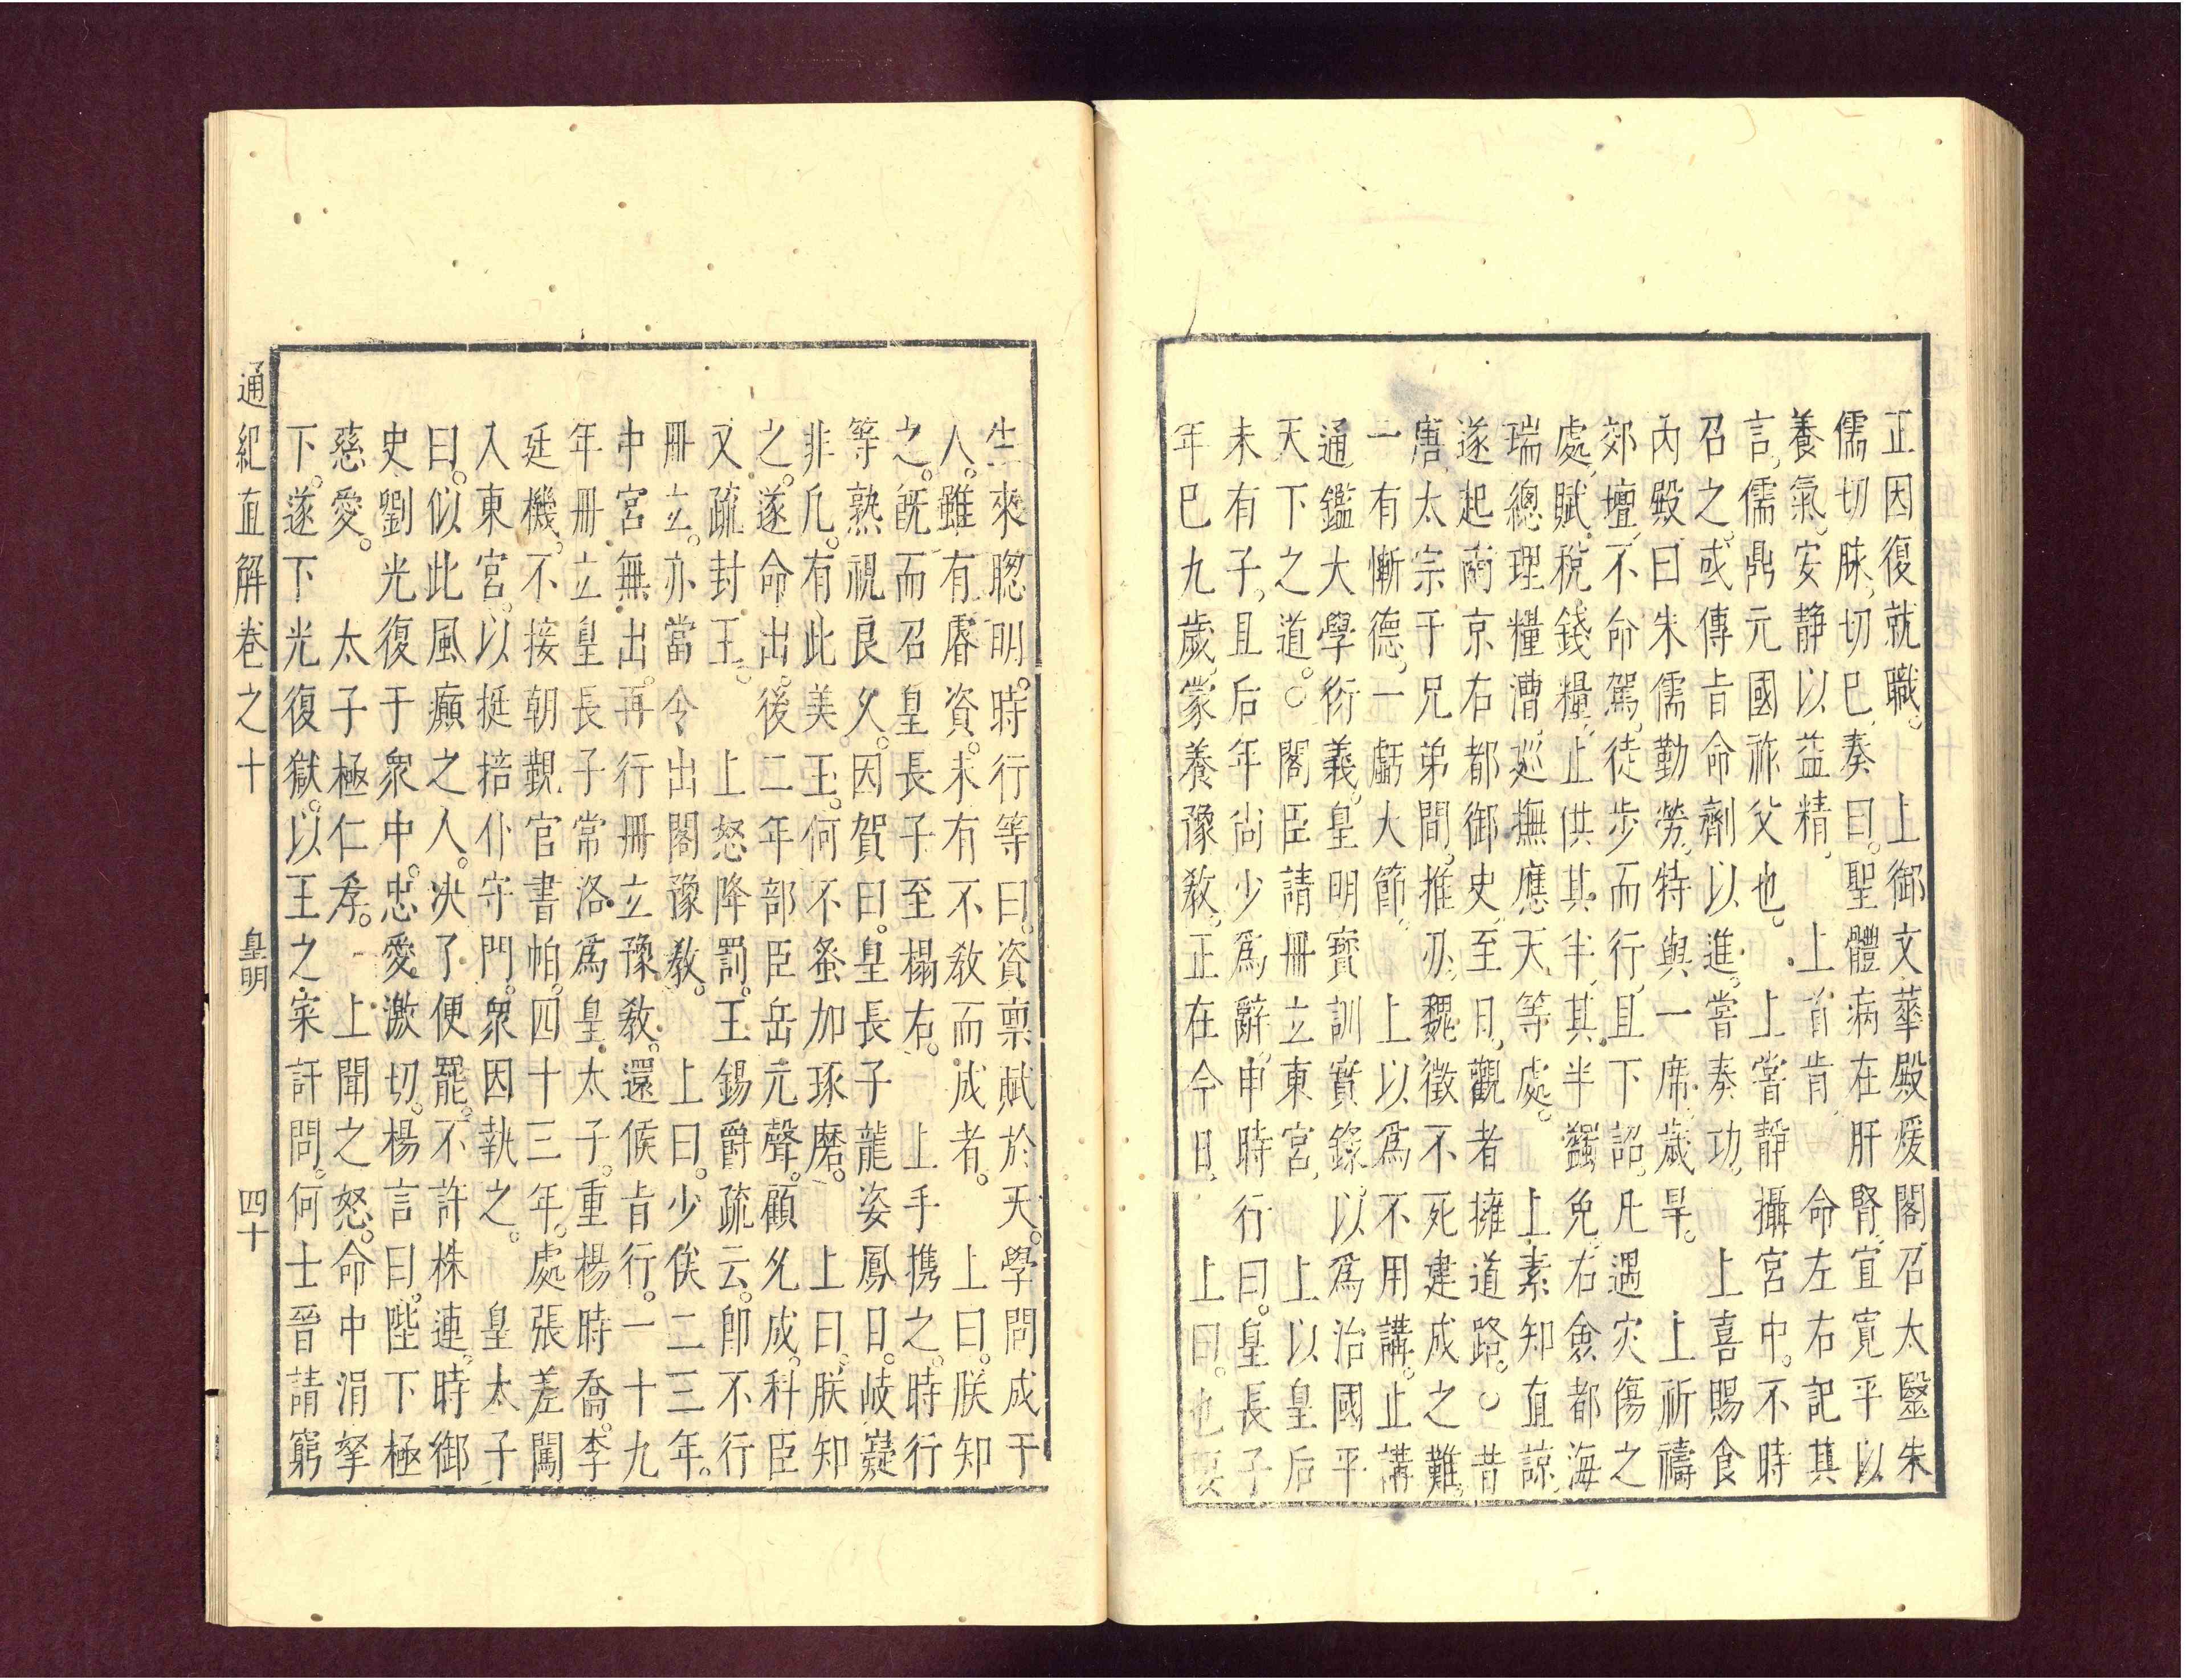 正因復就職。　上御文華殿煖閣召太醫朱
儒切脉、切已、奏曰。聖體病在肝腎、宜寛平以
養氣。安静以益精、　上首肯、命左右記其
言、儒鼎元國祚父也。　上嘗靜攝宮中。不時
召之、或傳旨命劑以進。嘗奏功、上喜賜食
内殿曰朱儒勤勞、特與一席、歳旱。　上祈禱
郊壇、不命駕、徒步而行、且下詔、凡遇灾傷之
處、賦税錢糧、止供其半、其半蠲免、右僉都海
瑞總理糧漕、巡撫應天等處。　上素知直諒、
遂起南京右都御史、至日、觀者擁道路。○昔
唐太宗于兄弟間、推刃、魏徵不死建成之難、
一有慚德、一虧大節、　上以爲不用講。止講
通鑑大學衍義。皇明寶訓實錄、以爲治國平
天下之道。○閣臣請册立東宮、　上以皇后
未有子、且后年尚少爲辭、申時行曰。皇長子
年已九歲、蒙養豫教。正在今日、　上曰。也要
生來聰明。時行等曰。資禀賦於天。學問成于
人。雖有睿資。未有不教而成者。　上曰。朕知
之。既而召皇長子至榻右。　上手携之。時行
等熟視良久。因賀曰。皇長子龍姿鳳日。岐嶷
非凡。有此美玉。何不蚤加琢磨。　上曰。朕知
之。遂命出。後二年部臣岳元聲。顧允成。科臣
又疏封王。　上怒降罰。王錫爵疏云。卽不行
册立。亦當令出閣豫教。　上曰。少俟二三年。
中宮無出。再行册立豫教。還候旨行。一十九
年册立皇長子常洛爲皇太子。重楊時喬。李
廷機。不接朝覲官書帕。四十三年。處張差闖
入東宮。以挺掊仆守門。衆因執之。　皇太子
曰。似此風癲之人。决了便罷。不許株連。時御
史劉光復于衆中。忠愛激切。楊言曰。陛下極
慈愛。　太子極仁孝。　上聞之怒。命中涓拏
下。遂下光復獄。以王之寀訐問。何士晉請窮
通紀直解卷之十　皇明　四十